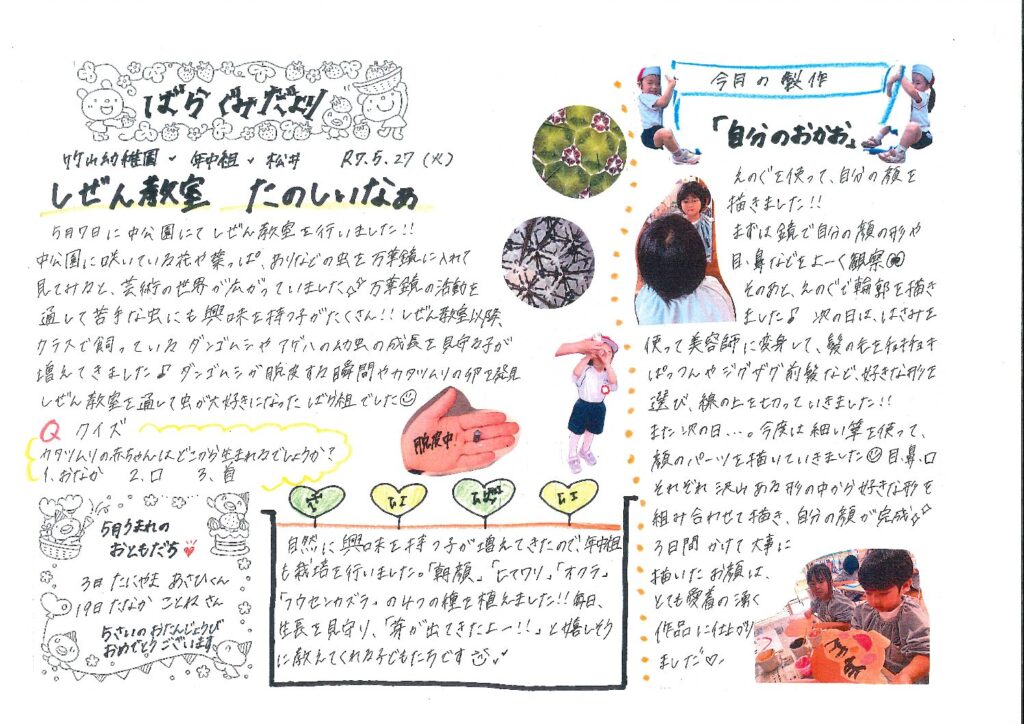 ばらぐみだより
竹山幼稚園・年中組・松井 R7.5.27(火)
しぜん教室 たのしいなぁ
5月7日に中公園にてしぜん教室を行いました!!
中公園に咲いている花や葉っぱ、ありなどの虫を万華鏡に入れて
見てみると、芸術の世界が広がっていました 万華鏡の活動を
通して苦手な虫にも興味を持つ子がたくさん!! しぜん教室以降、
クラスで飼っているダンゴムシやアゲハの幼虫の成長を見守る子が
増えてきました♪ ダンゴムシが脱皮する瞬間やカタツムリの卵を発見
しぜん教室を通して虫が大好きになったばら組でした
Q クイズ
カタツムリの赤ちゃんはどこから生まれるでしょうか?
1、おなか 2、口 3、首
脱皮中!
5月うまれの
おともだち
3日 たにやま あさひくん
19日 たなか ことねさん
5さいのおたんじょうび
おめでとうございます
自然に興味を持つ子が増えてきたので、年中組
も栽培を行いました。「朝顔」「ヒマワリ」「オクラ」
「フウセンカズラ」の4つの種を植えました!! 毎日、
生長を見守り、「芽が出てきたよー!!」と嬉しそう
に教えてくれる子どもたちです
今月の製作
「自分のおかお」
えのぐを使って、自分の顔を
描きました!!
まずは鏡で自分の顔の形や
目、鼻などをよーく観察
そのあと、えのぐで輪郭を描き
ました♪ 次の日は、はさみを
使って美容師に変身して、髪の毛をチョキチョキ
ぱっつんやジグザグ前髪など、好きな形を
選び、線の上を切っていきました!!
また次の日...。今度は細い筆を使って、
顔のパーツを描いていきました 目、鼻、口
それぞれ沢山ある形の中から好きな形を
組み合わせて描き、自分の顔が完成
3日間かけて大事に
描いたお顔は、
とても愛着の湧く
作品に仕上がり
ました♡